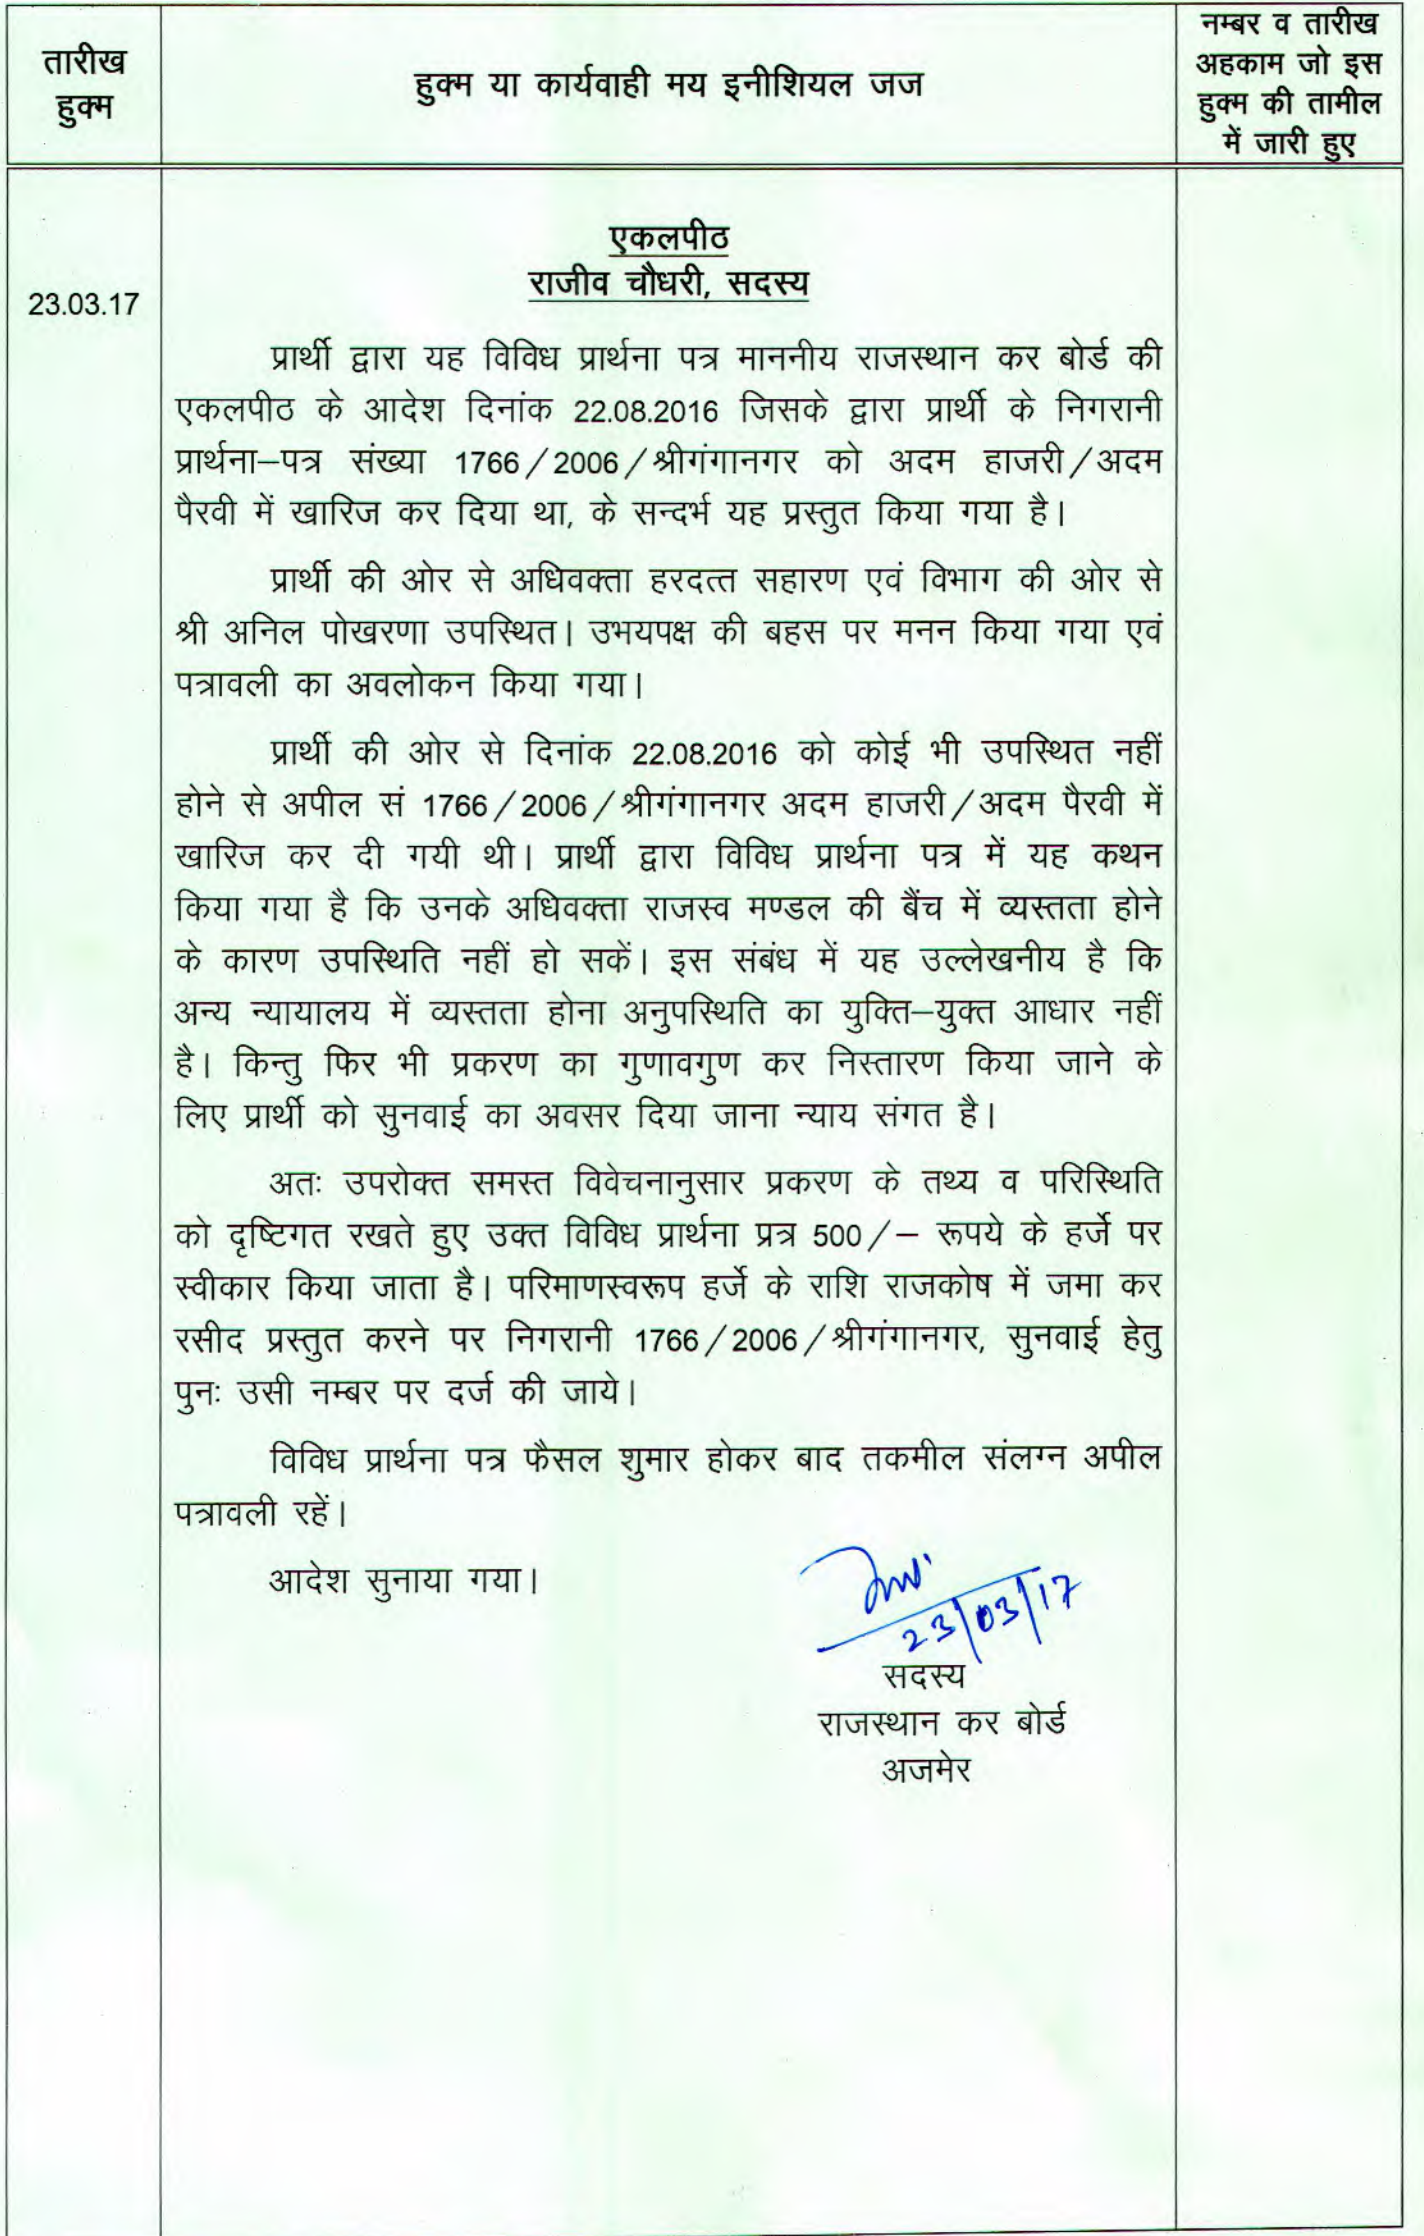 तारीख
हुक्म
हुक्म या कार्यवाही मय इनीशियल जज
नम्बर व तारीख
अहकाम जो इस
हुक्म की तामील
में जारी हुए
23.03.17
एकलपीठ
राजीव चौधरी, सदस्य
प्रार्थी द्वारा यह विविध प्रार्थना पत्र माननीय राजस्थान कर बोर्ड की
एकलपीठ के आदेश दिनांक 22.08.2016 जिसके द्वारा प्रार्थी के निगरानी
प्रार्थना–पत्र संख्या 1766/2006/श्रीगंगानगर को अदम हाजरी/अदम
पैरवी में खारिज कर दिया था, के सन्दर्भ यह प्रस्तुत किया गया है।
प्रार्थी की ओर से अधिवक्ता हरदत्त सहारण एवं विभाग की ओर से
श्री अनिल पोखरणा उपस्थित। उभयपक्ष की बहस पर मनन किया गया एवं
पत्रावली का अवलोकन किया गया।
प्रार्थी की ओर से दिनांक 22.08.2016 को कोई भी उपस्थित नहीं
होने से अपील सं 1766/2006/श्रीगंगानगर अदम हाजरी/अदम पैरवी में
खारिज कर दी गयी थी। प्रार्थी द्वारा विविध प्रार्थना पत्र में यह कथन
किया गया है कि उनके अधिवक्ता राजस्व मण्डल की बैंच में व्यस्तता होने
के कारण उपस्थिति नहीं हो सकें। इस संबंध में यह उल्लेखनीय है कि
अन्य न्यायालय में व्यस्तता होना अनुपस्थिति का युक्ति–युक्त आधार नहीं
है। किन्तु फिर भी प्रकरण का गुणावगुण कर निस्तारण किया जाने के
लिए प्रार्थी को सुनवाई का अवसर दिया जाना न्याय संगत है।
अतः उपरोक्त समस्त विवेचनानुसार प्रकरण के तथ्य व परिस्थिति
को दृष्टिगत रखते हुए उक्त विविध प्रार्थना प्रत्र 500/– रूपये के हर्जे पर
स्वीकार किया जाता है। परिमाणस्वरूप हर्जे के राशि राजकोष में जमा कर
रसीद प्रस्तुत करने पर निगरानी 1766/2006/श्रीगंगानगर, सुनवाई हेतु
पुनः उसी नम्बर पर दर्ज की जाये।
विविध प्रार्थना पत्र फैसल शुमार होकर बाद तकमील संलग्न अपील
पत्रावली रहें।
आदेश सुनाया गया।
23/03/17
सदस्य
राजस्थान कर बोर्ड
अजमेर